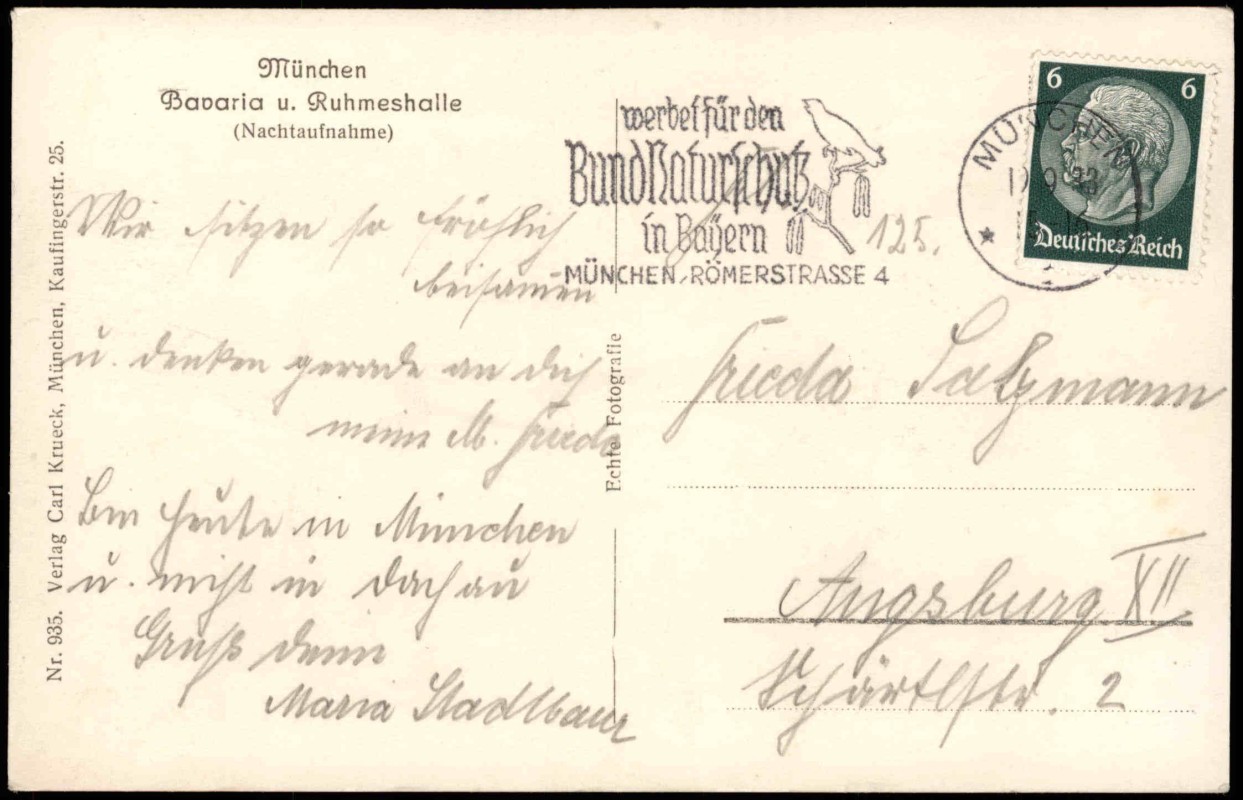 München
Bavaria u. Ruhmeshalle
(Nachtaufnahme)
werbet für den
Bund Naturschutz
in Bayern
MÜNCHEN, RÖMERSTRASSE 4
MÜNCHEN
6 6
Deutsches Reich
125.
Wir sitzen so fröhlich
beisamen
u. denken gerade an dich
meine lb. Frieda
Bin heute in München
u. nicht in Dachau
Gruß
Maria Stadlbaur
Echte Fotografie
Frieda Salzmann
Augsburg XII
Schärtlstr. 2
Nr. 935. Verlag Carl Krueck, München, Kaufingerstr. 25.